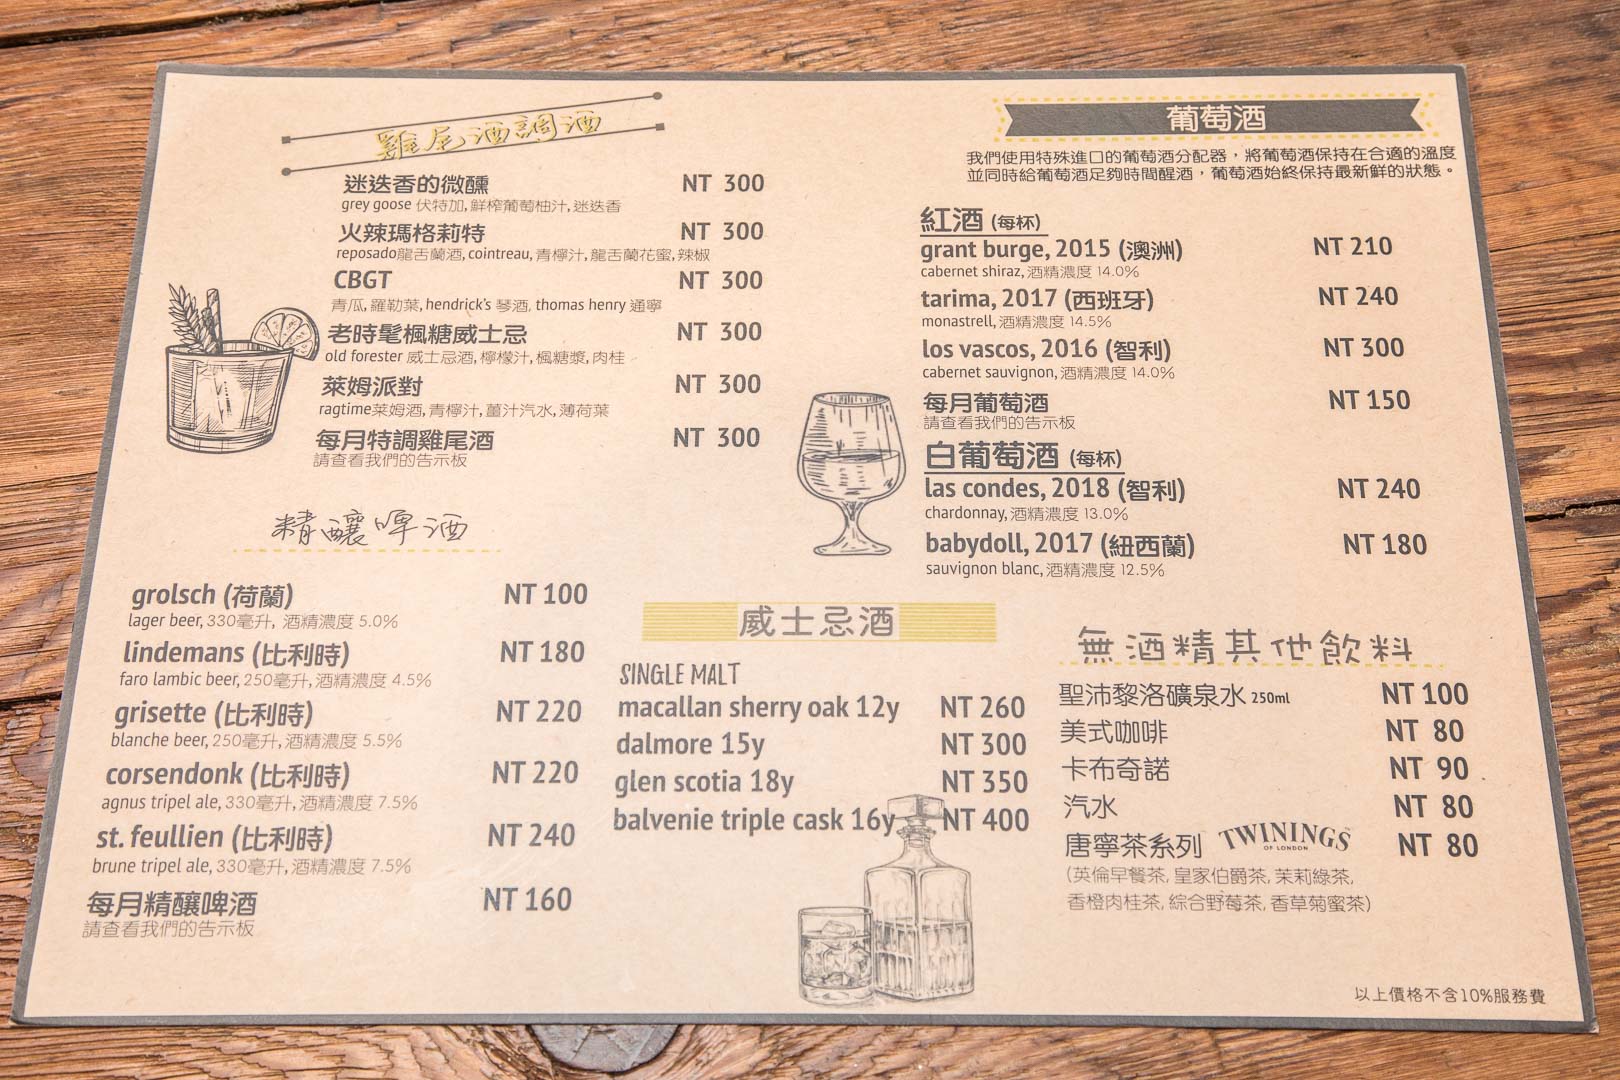 雞尾酒調酒
迷迭香的微醺 NT 300
grey goose 伏特加, 鮮榨葡萄柚汁, 迷迭香
火辣瑪格莉特 NT 300
reposado龍舌蘭酒, cointreau, 青檸汁, 龍舌蘭花蜜, 辣椒
CBGT NT 300
青瓜, 羅勒葉, hendrick's 琴酒, thomas henry 通寧
老時髦楓糖威士忌 NT 300
old forester 威士忌酒, 檸檬汁, 楓糖漿, 肉桂
萊姆派對 NT 300
ragtime萊姆酒, 青檸汁, 薑汁汽水, 薄荷葉
每月特調雞尾酒 NT 300
請查看我們的告示板
精釀啤酒
grolsch (荷蘭) NT 100
lager beer, 330毫升, 酒精濃度 5.0%
lindemans (比利時) NT 180
faro lambic beer, 250毫升, 酒精濃度 4.5%
grisette (比利時) NT 220
blanche beer, 250毫升, 酒精濃度 5.5%
corsendonk (比利時) NT 220
agnus tripel ale, 330毫升, 酒精濃度 7.5%
st. feullien (比利時) NT 240
brune tripel ale, 330毫升, 酒精濃度 7.5%
每月精釀啤酒 NT 160
請查看我們的告示板
葡萄酒
我們使用特殊進口的葡萄酒分配器，將葡萄酒保持在合適的溫度
並同時給葡萄酒足夠時間醒酒，葡萄酒始終保持最新鮮的狀態。
紅酒 (每杯)
grant burge, 2015 (澳洲) NT 210
cabernet shiraz, 酒精濃度 14.0%
tarima, 2017 (西班牙) NT 240
monastrell, 酒精濃度 14.5%
los vascos, 2016 (智利) NT 300
cabernet sauvignon, 酒精濃度 14.0%
每月葡萄酒 NT 150
請查看我們的告示板
白葡萄酒 (每杯)
las condes, 2018 (智利) NT 240
chardonnay, 酒精濃度 13.0%
babydoll, 2017 (紐西蘭) NT 180
sauvignon blanc, 酒精濃度 12.5%
威士忌酒
SINGLE MALT
macallan sherry oak 12y NT 260
dalmore 15y NT 300
glen scotia 18y NT 350
balvenie triple cask 16y NT 400
無酒精其他飲料
聖沛黎洛礦泉水 250ml NT 100
美式咖啡 NT 80
卡布奇諾 NT 90
汽水 NT 80
唐寧茶系列 TWININGS OF LONDON NT 80
(英倫早餐茶, 皇家伯爵茶, 茉莉綠茶,
香橙肉桂茶, 綜合野莓茶, 香草菊蜜茶)
以上價格不含10%服務費